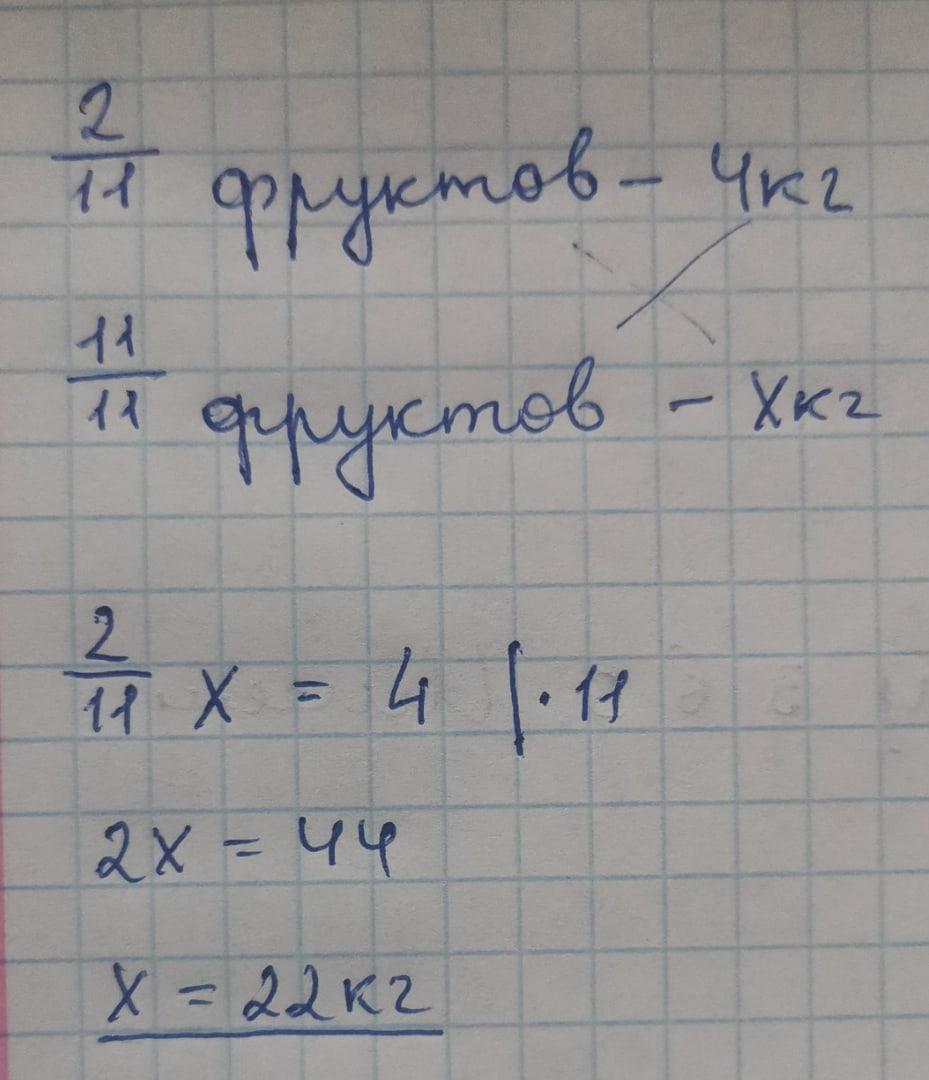 2/11 фруктов - 4кг
11/11 фруктов - xкг
2/11 x = 4 | · 11
2x = 44
x = 22кг